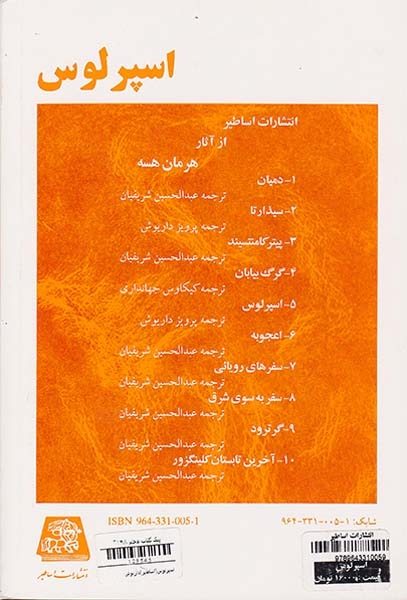 اسپرلوس
انتشارات اساطیر
از آثار
هرمان هسه
۱- دمیان
ترجمه عبدالحسین شریفیان
۲- سیدارتا
ترجمه پرویز داریوش
۳- پیتر کامنتسیند
ترجمه عبدالحسین شریفیان
۴- گرگ بیابان
ترجمه کیکاوس جهانداری
۵- اسپرلوس
ترجمه پرویز داریوش
۶- اعجوبه
ترجمه عبدالحسین شریفیان
۷- سفرهای رویائی
ترجمه عبدالحسین شریفیان
۸- سفر به سوی شرق
ترجمه عبدالحسین شریفیان
۹- گرترود
ترجمه عبدالحسین شریفیان
۱۰- آخرین تابستان کلینگزور
ترجمه عبدالحسین شریفیان
شابک: ۱-۰۰۵-۳۳۱-۹۶۴
ISBN 964-331-005-1
انتشارات اساطیر
9789643310059
اسپرلوس
انتشارات اساطیر